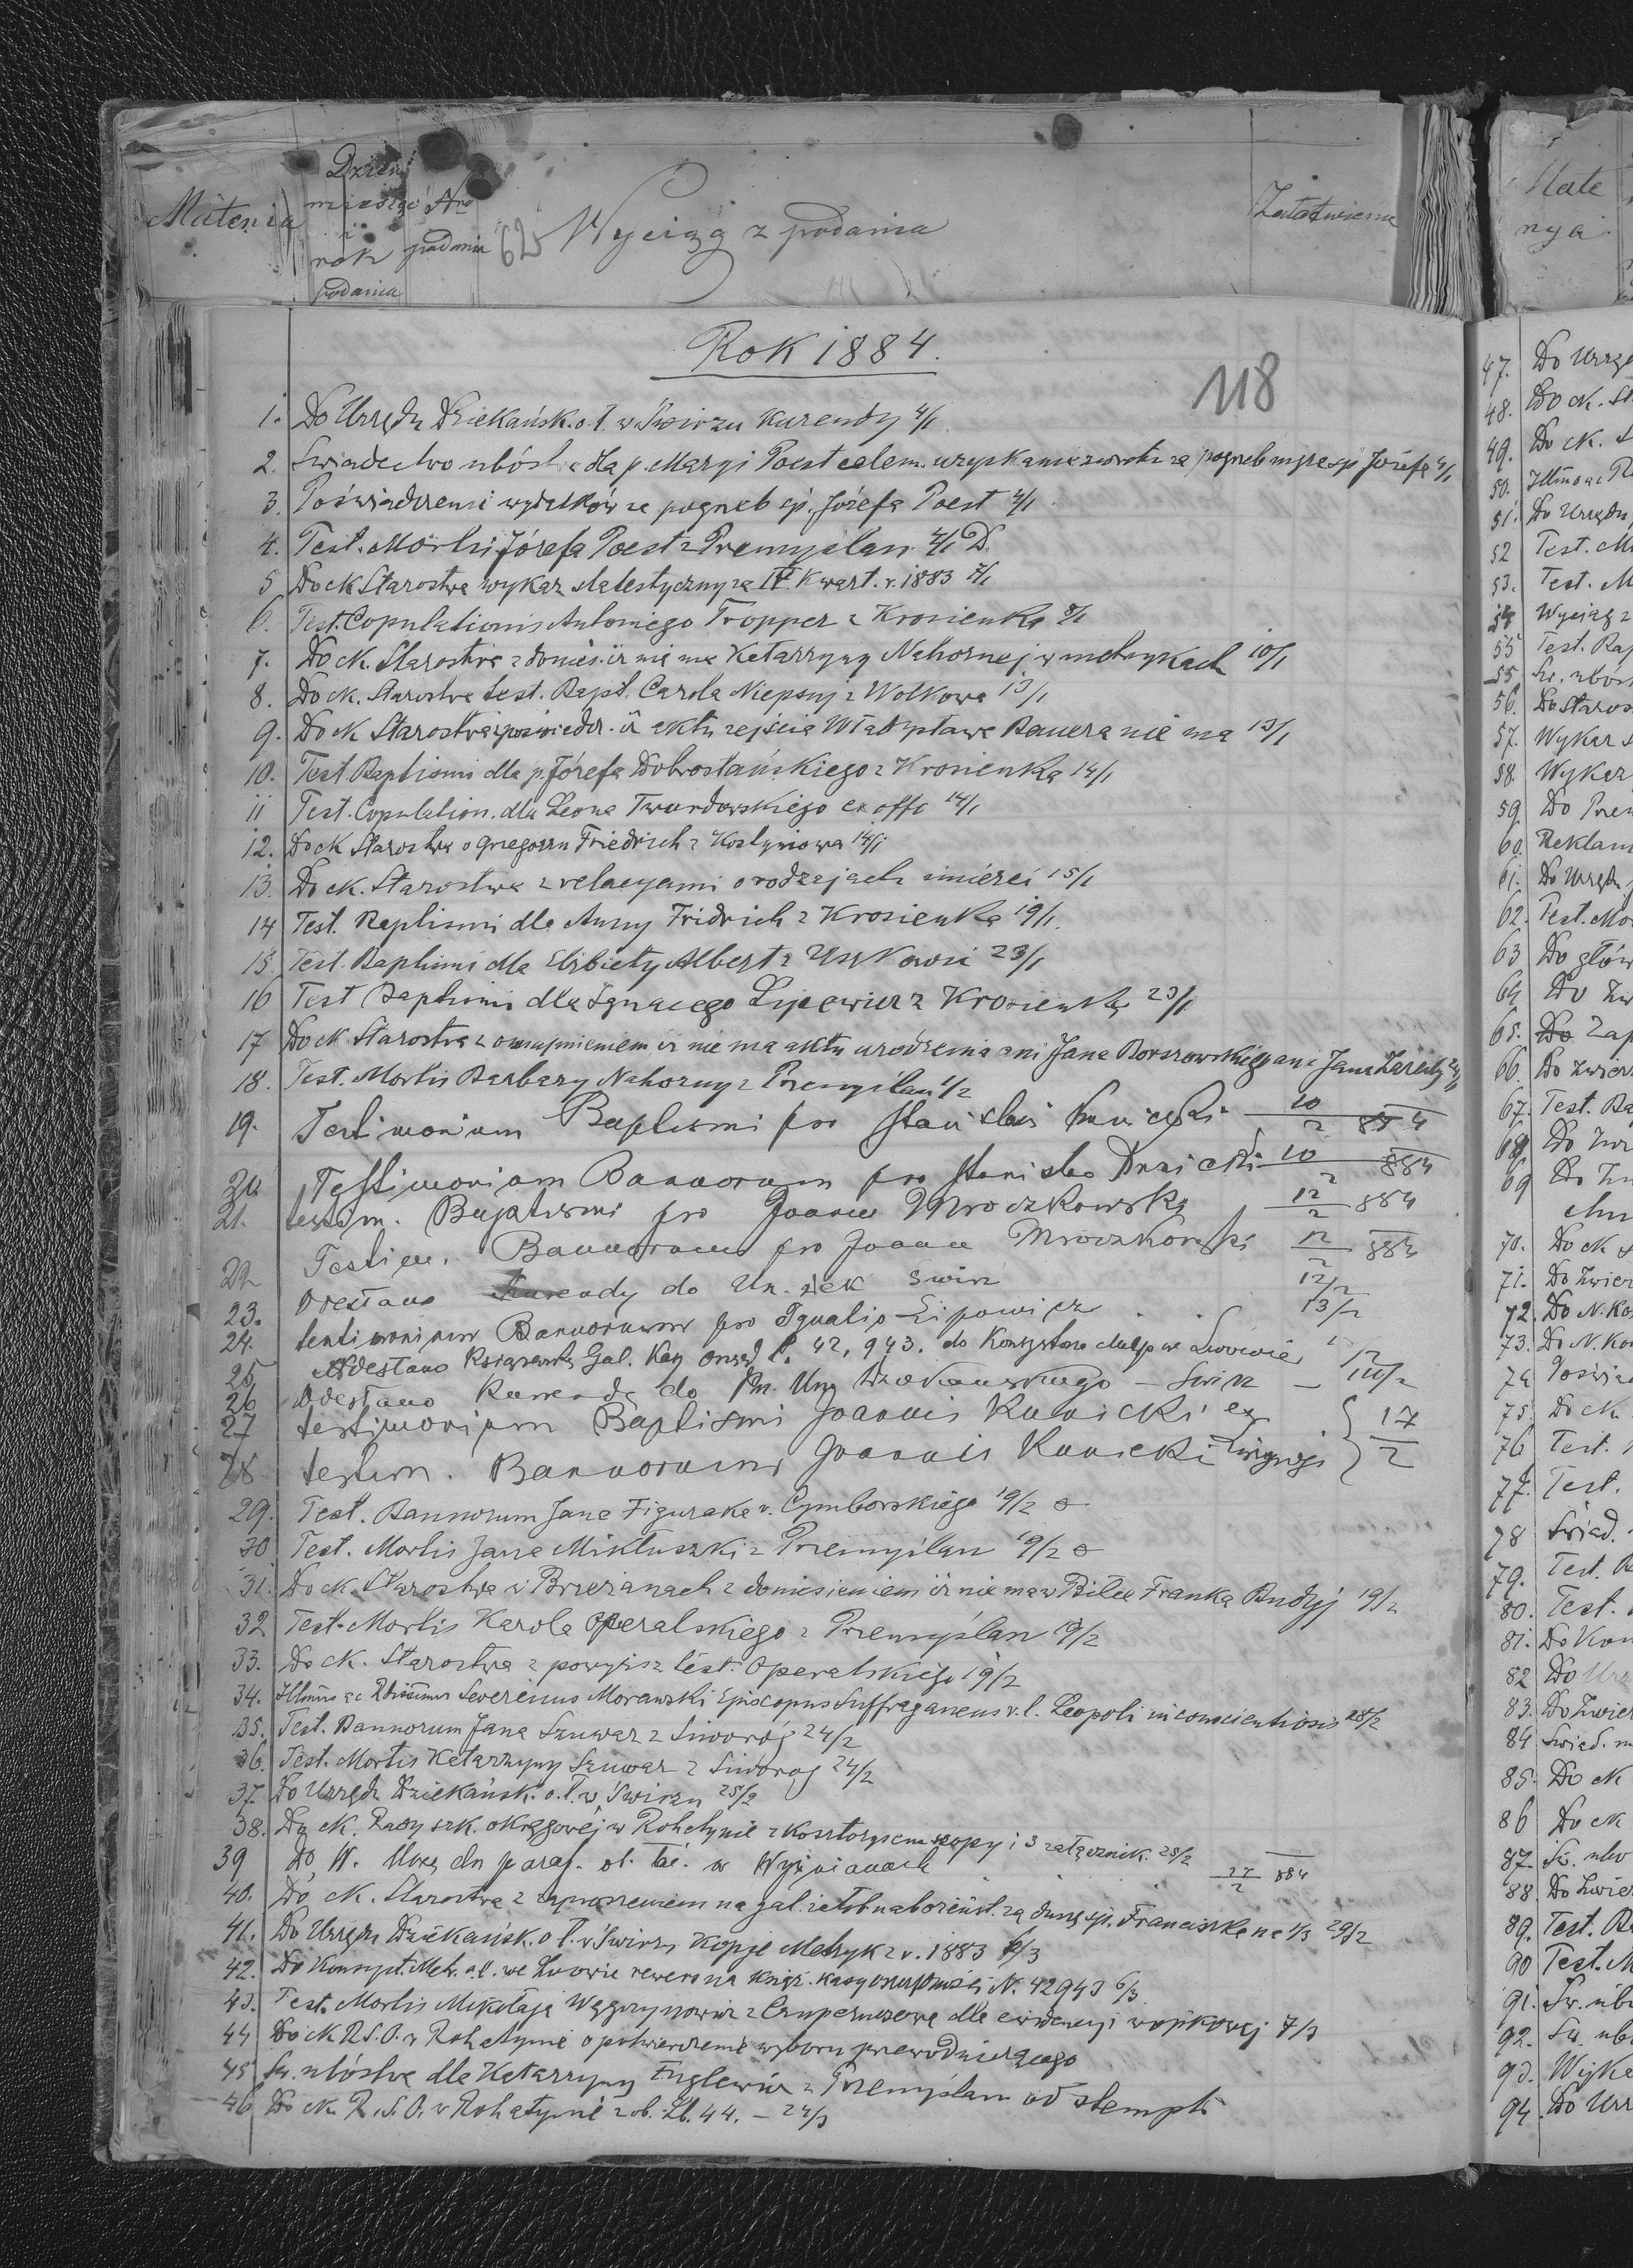 Materia
Dzień
miesiąc
i
rok
podania
Nro
podania
62
Wyciąg z podania
Załatwienie
Rok 1884.
118
1. Do Urzędu Dziekańsk. o. ł. w Świrzu Kurendy 4/1
2. Świadectwo ubóstwa dla p. Maryi Poest celem uzyskania zwrotu za pogrzeb męża śp. Józefa 4/1
3. Poświadczenie wydatków za pogrzeb śp. Józefa Poest 4/1
4. Test. Mortis Józefa Poest z Przemyślan 4/1 D.
5 Do ck Starostwa wykaz statestyczny za IV Kwart. r. 1883 7/1
6. Test. Copulationis Antoniego Tropper z Krosienka 8/1
7. Do ck. Starostwa z donies. iż nie ma Katarzyny Nahornej w metrykach 10/1
8. Do ck. Starostwa test. Bapt. Carola Niepsuj z Wolkowa 13/1
9. Do ck Starostwa poświadcz. iż aktu zejścia Władysława Bauera nie ma 13/1
10. Test. Baptismi dla p. Józefa Dobrostańskiego z Krosienka 14/1
11 Test. Copulation. dla Leona Twardowskiego ex offo 14/1
12. Do ck Starostwa o Grzegorzu Friedrich z Kostyniowa 14/1
13. Do ck. Starostwa z relacyami o rodzajach śmierci 15/1
14 Test. Baptismi dla Anny Fridrich z Krosienka 19/1.
15. Test. Baptismi dla Elżbiety Albert z Uszkowic 23/1
16 Test Baptismi dla Ignacego Lipowicz z Krosienka 23/1
17 Do ck Starostwa z oznajmieniem iż nie ma aktu urodzenia ani Jana Borszowskiego ani Jana Zaręby
18. Test. Mortis Barbary Nahorny z Przemyślan 1/2
19. Testimonium Baptismi pro Stanislai 10/2 884
20 Testimonium Bannorum pro Stanislao 10/2 884
21. testim. Baptismi pro Joanne Mroczkowski 12/2 884
22 Testim. Bannorum pro Joanne Mroczkowski 12/2 884
23. Odesłano Kurendy do Un. dziek Swirz 12/2
24. testimonium Bannorum pro Ignatio Lipowicz . . 13/2
25 Odesłano Książeczkę Gal. Kasy oszcz ł. 42,943. do Konsystorza we Lwowie
26 Odesłano Kurendę do Urz Dziekańskiego - Swirz - 14/2
27 testimonium Baptismi Joannis Kunicki ex
28 testim. Bannorum Joannis Kunicki 17/2
29. Test. Bannorum Jana Figuraka v. Cymborskiego 19/2
30. Test. Mortis Jana Miktuszki z Przemyślan 19/2
31. Do ck. Starostwa w Brzeżanach z doniesieniem iż nie ma w Biłce Franka Budzij 19/2
32 Test. Mortis Karola Operalskiego z Przemyślan 19/2
33. Do ck. Starostwa z powyższ. test. Operalskiego 19/2
34. Illmus ac Rdissimus Severinus Morawski Episcopus Suffraganeus r. l. Leopoli in conscientiosis 28/2
35. Test. Bannorum Jana Szuwar z Siworog 24/2
36. Test. Mortis Katarzyny Szuwar z Siworog 24/2
37. Do Urzędu Dziekańsk. o. ł. w Świrzu 25/2
38. Do ck. Rady szk. okręgowéj w Rohatynie z kosztorysem szopy i 3 załącznik. 25/2
39 Do W. Urzę du paraf. ob. łać. w Wyżnianach 27/2 884
40. Do ck. Starostwa z zaproszeniem na gal. żałob. nabożeńst. za duszę śp. Franciszka na 1/3 29/2
41. Do Urzędu Dziekańsk. o ł. w Świrzu Kopje Metryk z r. 1883 6/3
42. Do Konsyst. Metr. o. ł. we Lwowie rewers na książ. kasy oszczędności N. 42943 6/3
43. Test. Mortis Mikołaja Węgrzynowicz z Czupernosowa dla ewidencyi wojskowej 7/3
44 Do ck R.S.O. w Rohatynie o potwierdzenie wyboru przewodniczącego
45 Św. ubóstwa dla Katarzyny Englewicz z Przemyślan od stempli
46 Do ck R.S.O. w Rohatynie z ob. Lb. 44. - 24/3
Mate
rya
47. Do Urzę
48. Do ck. St
49. Do ck. S
50. Illmo ac R
51. Do Urzędu
52 Test. M
53. Test. M
54 Wyciąg z
55 Test. Bap
55 Św. ubós
56. Do Staros
57. Wykaz s
58. Wykaz
59. Do Prze
60. Reklam
61. Do Urzędu
62. Test. Mor
63 Do głów
64 Do Zw
65. Do Zap
66. Do Zwierz
67. Test. Ba
68. Do Zw
69 Do Zw
70. Do ck S
71. Do Zwier
72. Do N. Ko
73. Do N. Kon
74 Poświa
75. Do ck.
76 Test.
77. Test.
78 Świad.
79. Test. B
80. Test.
81. Do Kon
82 Do Urz
83. Do Zwier
84 Świad. m
85. Do ck
86 Do ck
87. Św. ubo
88. Do Zwier
89. Test. B
90 Test. M
91. Św. ubó
92. Św. ubó
93. Wyka
94. Do Urz